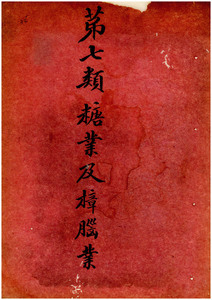 第七類糖業及樟腦業